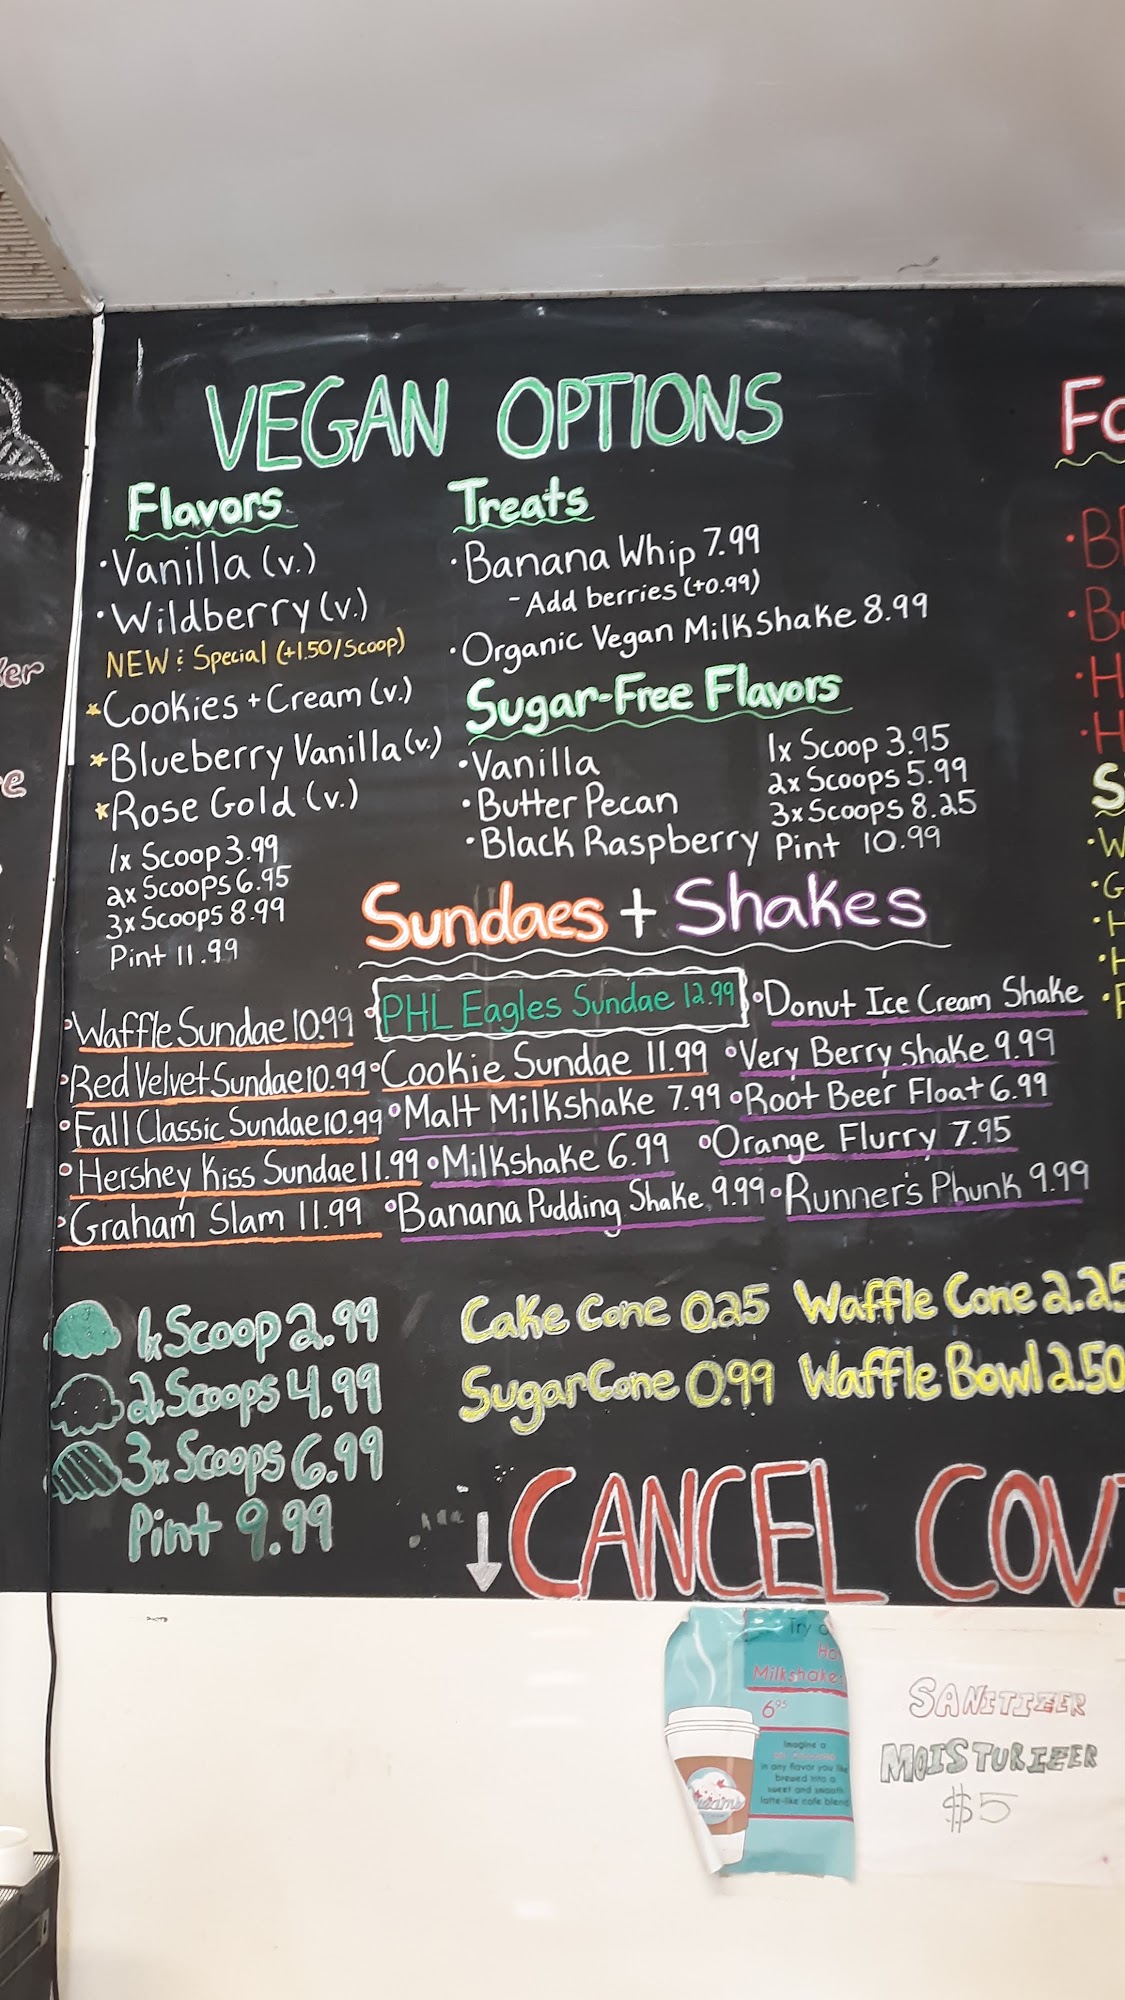 VEGAN OPTIONS
Flavors
·Vanilla (v.)
·Wildberry (v.)
NEW : Special (+1.50/Scoop)
Cookies + Cream (v.)
Blueberry Vanilla (v.)
Rose Gold (v.)
1x Scoop 3.99
2x Scoops 6.95
3x Scoops 8.99
Pint 11.99
Treats
·Banana Whip 7.99
- Add berries (+0.99)
·Organic Vegan MilkShake 8.99
Sugar-Free Flavors
·Vanilla
·Butter Pecan
·Black Raspberry
1x Scoop 3.95
2x Scoops 5.99
3x Scoops 8.25
Pint 10.99
Sundaes + Shakes
Waffle Sundae 10.99
Red Velvet Sundae 10.99
Fall Classic Sundae 10.99
Hershey Kiss Sundae 11.99
Graham Slam 11.99
PHL Eagles Sundae 12.99
Cookie Sundae 11.99
Malt Milkshake 7.99
Milkshake 6.99
Banana Pudding Shake 9.99
Donut Ice Cream Shake
Very Berry Shake 9.99
Root Beer Float 6.99
Orange Flurry 7.95
Runner's Phunk 9.99
1x Scoop 2.99
2x Scoops 4.99
3x Scoops 6.99
Pint 9.99
Cake Cone 0.25
Waffle Cone 2.25
Sugar Cone 0.99
Waffle Bowl 2.50
CANCEL COVI
Try a
Milkshake
6.95
Imagine a
in any flavor you like
brewed into a
sweet and smooth
latte-like cafe blend
SANITIZER
MOISTURIZER
$5